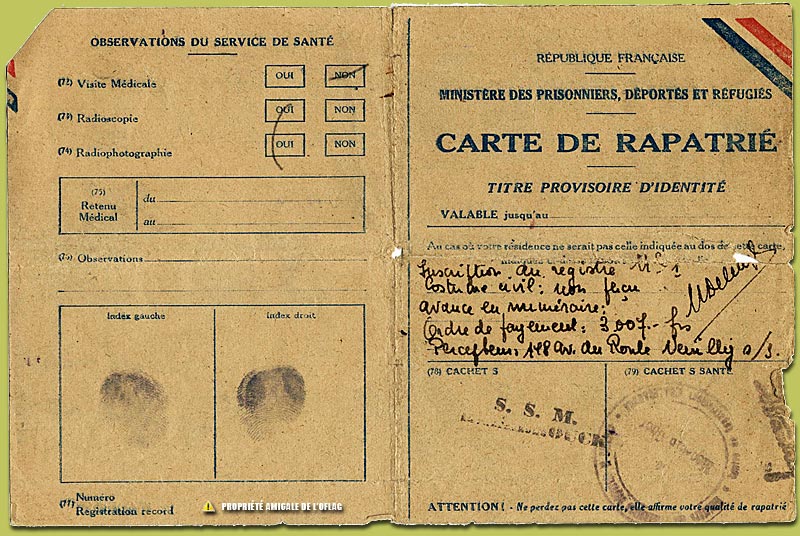 OBSERVATIONS DU SERVICE DE SANTÉ
(72) Visite Médicale OUI NON
(73) Radioscopie OUI NON
(74) Radiophotographie OUI NON
(75) Retenu Médical
du
au
(76) Observations
Index gauche Index droit
(77) Numéro
Registration record
PROPRIÉTÉ AMICALE DE L'OFLAG
RÉPUBLIQUE FRANÇAISE
MINISTÈRE DES PRISONNIERS, DÉPORTÉS ET RÉFUGIÉS
CARTE DE RAPATRIÉ
TITRE PROVISOIRE D'IDENTITÉ
VALABLE jusqu'au
Au cas où votre résidence ne serait pas celle indiquée au dos de cette carte,
Inscription au registre N° 1
Costume civil: non reçu
Avance en numéraire:
Ordre de payement: 3.007.- frs
Percepteur: 148 Av. du Roule Neuilly s/S.
(78) CACHET S (79) CACHET S SANTÉ
S. S. M.
ATTENTION! - Ne perdez pas cette carte, elle affirme votre qualité de rapatrié